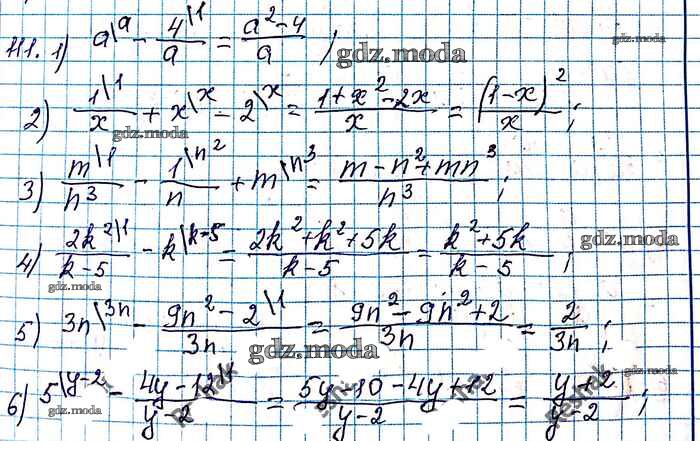 н1. 1) a\a - 4\1/a = (a² - 4)/a ;
gdz.moda
gdz.moda
2) 1\1/x + x\x - 2\x = (1 + x² - 2x)/x = (1 - x)²/x ;
gdz.moda
3) m\1/n³ - 1\n²/n + m\n³ = (m - n² + mn³)/n³ ;
4) 2k²\1/(k - 5) - k\k-5 = (2k² + k² + 5k)/(k - 5) = (k² + 5k)/(k - 5) ;
gdz.moda
gdz.moda
5) 3n\3n - (9n² - 2\1)/3n = (9n² - 9n² + 2)/3n = 2/3n ;
gdz.moda
gdz.moda
6) 5\y-2 - (4y - 12)/(y - 2) = (5y - 10 - 4y + 12)/(y - 2) = (y + 2)/(y - 2) ;
gdz.moda
Reshak
Reshak